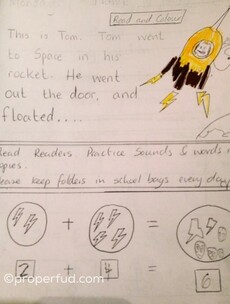 Read and Colour
This is Tom. Tom went
to Space in his
rocket. He went
out the door, and
floated....
Read Readers. Practice Sounds & words in
copies.
Please keep folders in school bags every day
+ =
2 + 4 = 6
©properfud.com